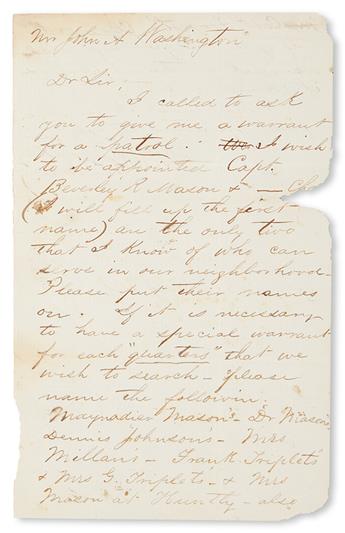 Mr John A Washington
Dr Sir,
I called to ask
you to give me a warrant
for a patrol. I wish
to be appointed Capt.
Beverley R Mason & — Ch
(I will fill up the first
name) are the only two
that I know of who can
serve in our neighborhood–
Please put their names
on. If it is necessary
to have a special warrant
for each "quarters" that we
wish to search – please
name the followin.
Maynadier Mason's – Dr Mason's
Dennis Johnson's – Mrs
Millan's – Frank Triplets
& Mrs G. Triplets – & Mrs
Mason at Huntly – also